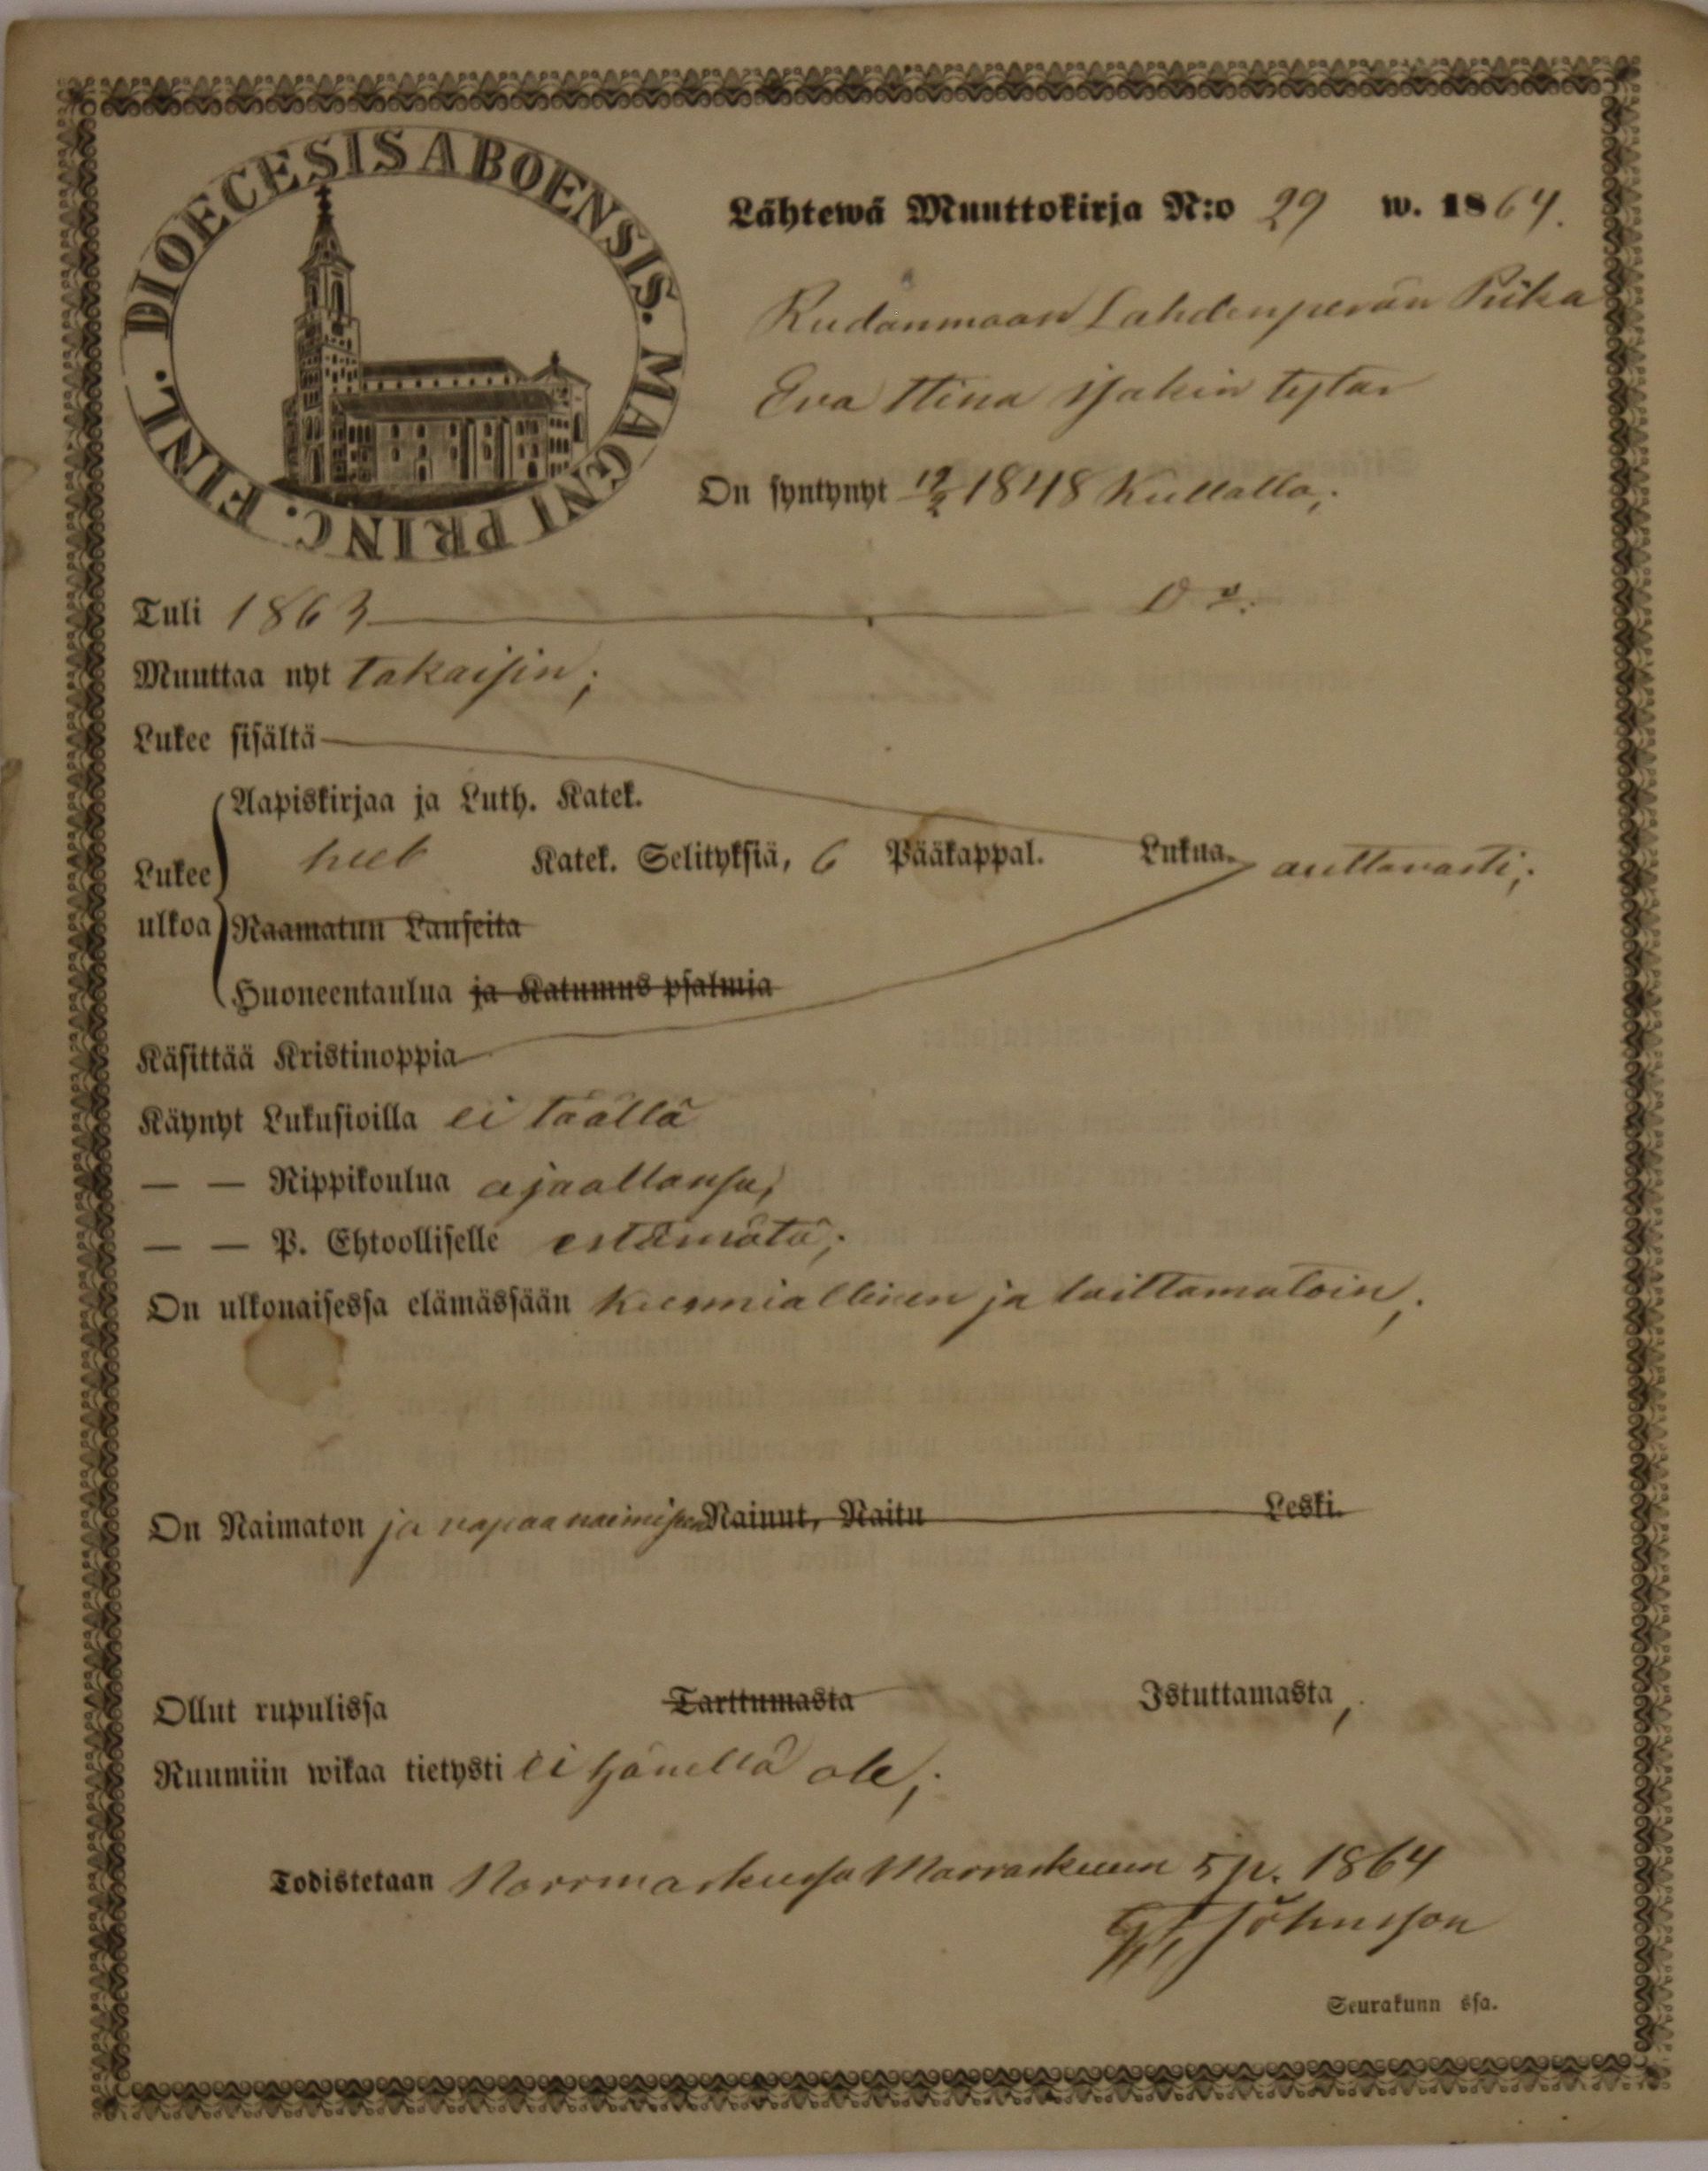 DIOECESIS ABOENSIS. MAGNI PRINC. FINL.
Lähtewä Muuttokirja N:o 29 w. 1864.
Rudanmaan Lahdenperän Piika
Eva Stina Isakin tytar
On syntynyt 12/2 1848 Kullalla;
Tuli 1863 — Do.
Muuttaa nyt takaisin;
Lukee sisältä
Aapiskirjaa ja Luth. Katek.
Lukee ulkoa Katek. Selityksiä, 6 Pääkappal. Lukua. auttavasti;
Raamatun Lauseita
Huoneentaulua ja Katumus psalmia
Käsittää Kristinoppia
Käynyt Lukusioilla ei täällä
— — Rippikoulua ajaallansa;
— — P. Ehtoolliselle estämätä;
On ulkonaisessa elämässään kunniallinen ja laittamatoin;
On Naimaton ja vapaa naimisen Nainut, Naitu Leski.
Ollut rupulissa Tarttumasta Istuttamasta;
Ruumiin wikaa tietysti ei hänellä ole;
Todistetaan Norrmarkussa Marraskuun 5 p. 1864
Johnsson
Seurakunn ssa.